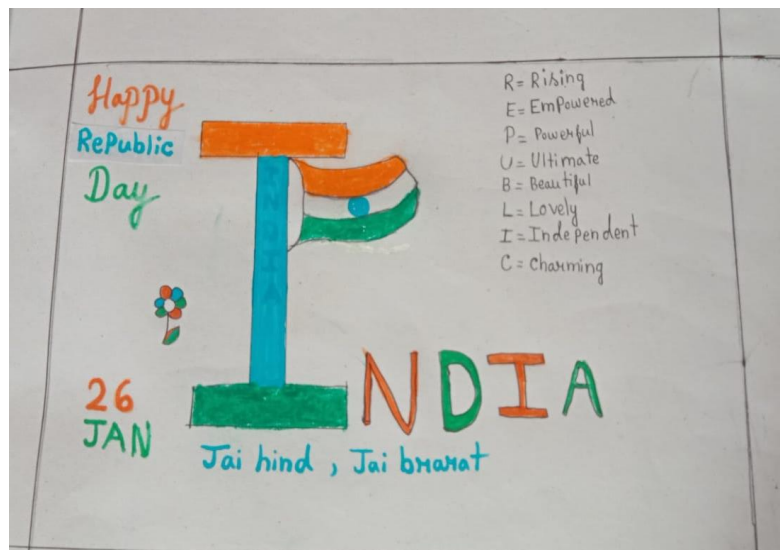 Happy
RePublic
Day
R= Rising
E= EmPowered
P= Powerful
U= Ultimate
B= Beautiful
L= Lovely
I= Independent
C= Charming
INDIA
INDIA
26
JAN
Jai hind, Jai bharat